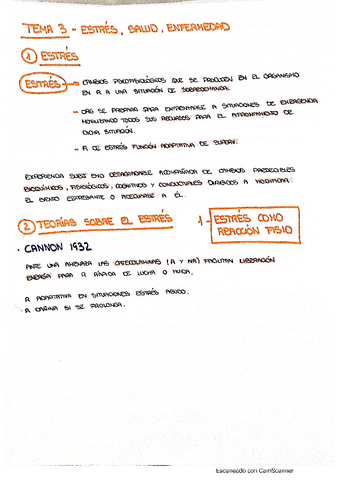 TEMA 3 - ESTRÉS, SALUD, ENFERMEDAD
1 ESTRÉS
ESTRÉS → CAMBIOS PSICOFISIOLÓGICOS QUE SE PRODUCEN EN EL ORGANISMO
EN R A UNA SITUACIÓN DE SOBREDEMANDA.
- ORG SE PREPARA PARA ENFRENTARSE A SITUACIONES DE EMERGENCIA
MOVILIZANDO TODOS SUS RECURSOS PARA EL AFRONTAMIENTO DE
DICHA SITUACIÓN.
- R DE ESTRÉS FUNCIÓN ADAPTATIVA DE SUPERV.
EXPERIENCIA SUBJ EMO DESAGRADABLE ACOMPAÑADA DE CAMBIOS PREDECIBLES
BIOQUÍMICOS, FISIOLÓGICOS, COGNITIVOS Y CONDUCTUALES DIRIGIDOS A MODIFICAR
EL EVENTO ESTRESANTE O ADECUARSE A ÉL.
2 TEORÍAS SOBRE EL ESTRÉS
1 - ESTRÉS COMO
REACCIÓN FISIO
· CANNON 1932
ANTE UNA AMENAZA LAS CATECOLAMINAS (A Y NA) FACILITAN LIBERACIÓN
ENERGÍA PARA R RÁPIDA DE LUCHA O HUIDA.
R ADAPTATIVA EN SITUACIONES ESTRÉS AGUDO.
R DAÑINA SI SE PROLONGA.
Escaneado con CamScanner